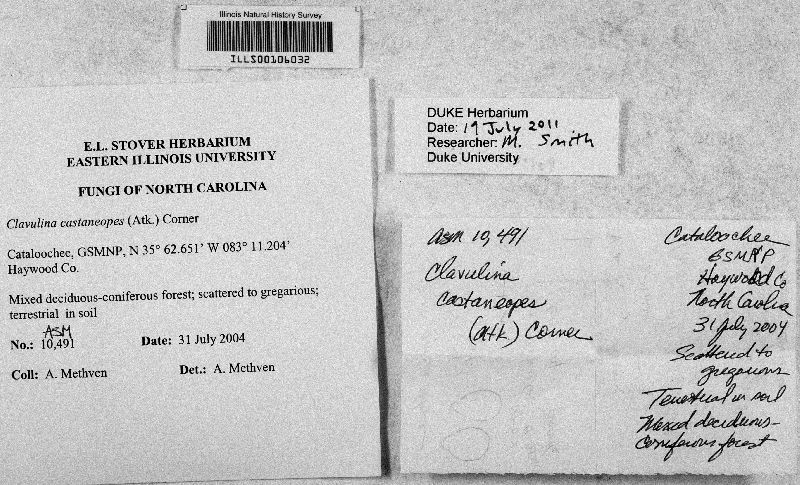 Illinois Natural History Survey
ILLS00106032
E.L. STOVER HERBARIUM
EASTERN ILLINOIS UNIVERSITY
FUNGI OF NORTH CAROLINA
Clavulina castaneopes (Atk.) Corner
Cataloochee, GSMNP, N 35° 62.651' W 083° 11.204'
Haywood Co.
Mixed deciduous-coniferous forest; scattered to gregarious;
terrestrial in soil
ASM
No.: 10,491 Date: 31 July 2004
Coll: A. Methven Det.: A. Methven
DUKE Herbarium
Date: 19 July 2011
Researcher: M. Smith
Duke University
ASM 10,491
Clavulina
castaneopes
(Atk.) Corner
Cataloochee
GSMNP
Haywood Co
North Carolina
31 July 2004
Scattered to
gregarious
Terrestrial in soil
Mixed deciduous-
coniferous forest